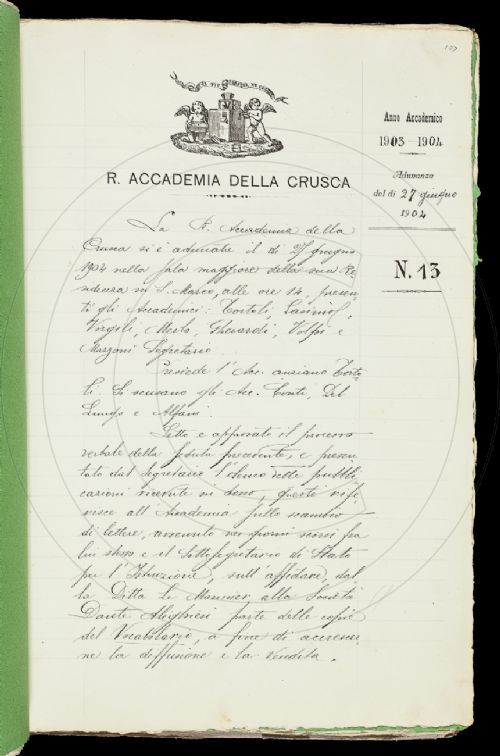 Anno Accademico
1903-1904
Adunanza
del dì 27 giugno
1904
N. 13
R. ACCADEMIA DELLA CRUSCA
La R. Accademia della
Crusca si è adunata il dì 27 giugno
1904 nella sala maggiore della sua Re-
sidenza in S. Marco, alle ore 14, presen-
ti gli Accademici: Tortoli, Lasinio,
Virgili, Mesto, Gherardi, Volpi e
Mazzoni Segretario.
Presiede l'Acc. anziano Torto-
li. Si scusano gli Acc. Conti, Del
Lungo e Alfani.
Letto e approvato il processo
verbale della seduta precedente, e presen-
tato dal Segretario l'elenco delle pubbli-
cazioni ricevute in dono, questi rife-
risce all'Accademia sullo scambio
di lettere, avvenuto nei giorni scorsi fra
lui stesso e il Sottosegretario di Stato
per l'Istruzione, sull'affidare, dal-
la Ditta Le Monnier alla Società
Dante Alighieri parte delle copie
del Vocabolario, a fine di accrescer-
ne la diffusione e la vendita.